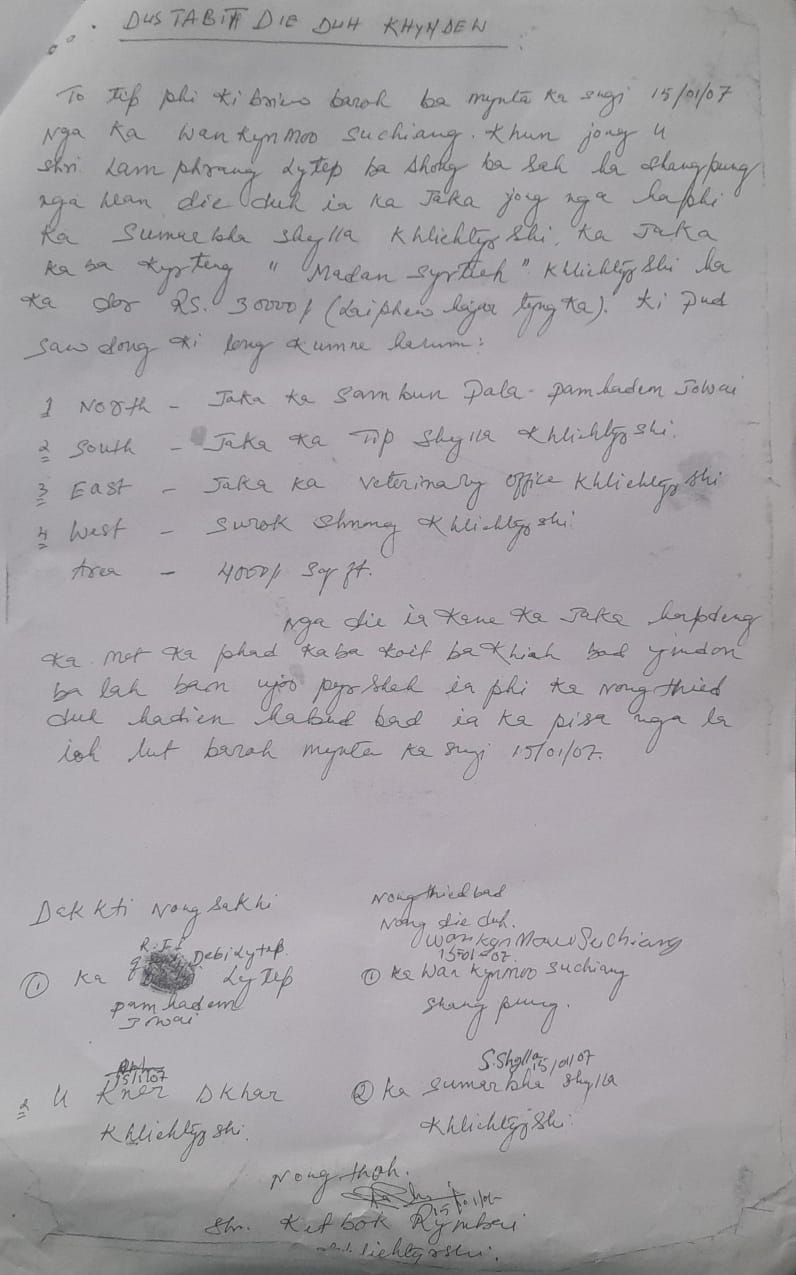 DUSTABITH DIE DUH KHYNDEW
To tip phi ki briew baroh ba mynta ka sngi 15/01/07
Nga Ka Wan Kynmoo Suchiang. Khun jong U
Shri Lam phrang Lytep ba shong ba sah ha Shangpung
nga wan die duh ia ka Jaka jong nga haphi
Ka Sumarbha Shylla Khlichtyrshi. Ka Jaka
ka ba kyrteng " Madan Syrtteh" Khlichtyrshi ha
ka dor Rs. 30000/ (Laiphew hajar tyngka). Ki pud
sawdong ki long kumne harum:
1 North - Jaka ka Sambun Pala - Pamhadem Jowai
2 South - Jaka ka Tip Shylla Khlichtyrshi.
3 East - Jaka ka Veterinary office Khlichtyrshi
4 West - Surok Shnong Khlichtyrshi.
Area - 4000/ Sqr ft.
Nga die ia kane ka Jaka hapdeng
ka met ka phad kaba koit ba khiah bad ymdon
ba lah ban ujor pyrshah ia phi ka nongthied
duh hadien habud bad ia ka pisa nga la
ioh lut baroh mynta ka sngi 15/01/07.
Dak kti Nong sakhi
Nongthied bad
Nong die duh.
Wankyn Moo Suchiang
15-01-07.
R.T.I Debi Lytep.
① Ka Lytep
① Ka Wan Kynmoo Suchiang
Pamhadem
Jowai
Shangpung.
15/1/07
S. Shylla 15/01/07
2 U Kner Dkhar
② Ka Sumarbha Shylla
Khlichtyrshi.
Khlichtyrshi.
Nong thoh.
15/01/07
Shr. Kitbok Rymbai